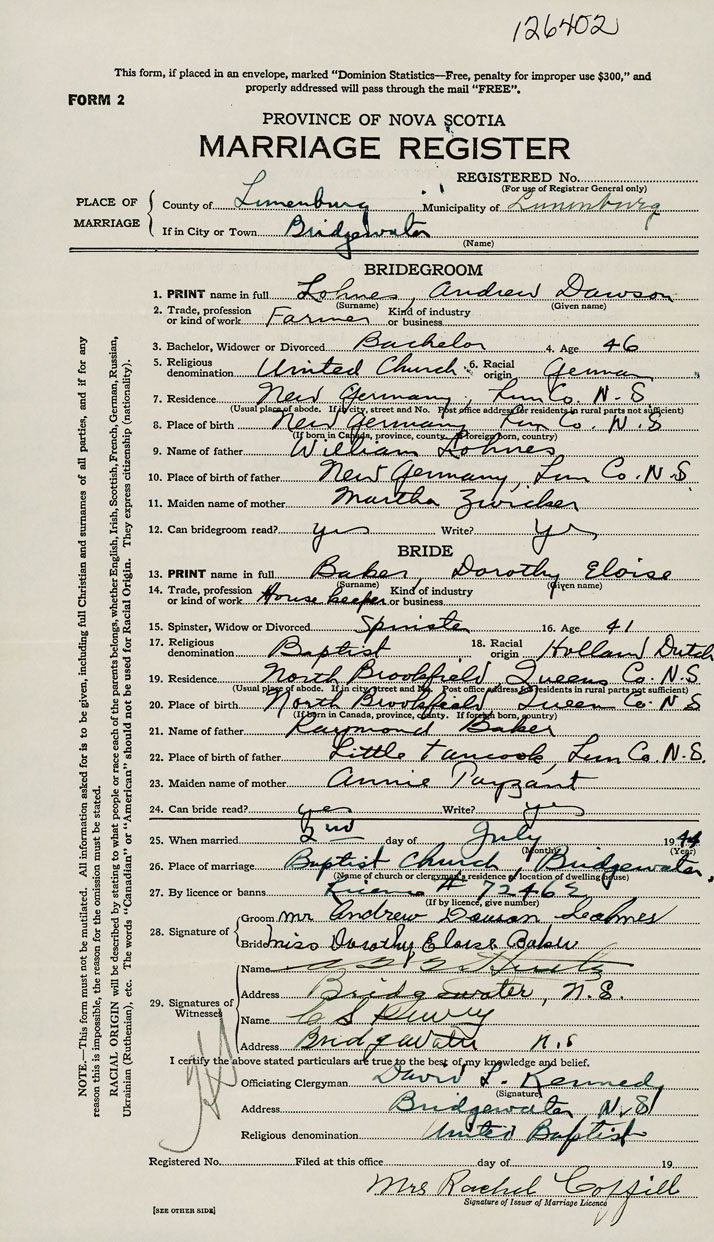 126402
This form, if placed in an envelope, marked "Dominion Statistics—Free, penalty for improper use $300," and
properly addressed will pass through the mail "FREE".
FORM 2
PROVINCE OF NOVA SCOTIA
MARRIAGE REGISTER
REGISTERED No.
(For use of Registrar General only)
PLACE OF MARRIAGE
County of Lunenburg Municipality of Lunenburg
If in City or Town Bridgewater
(Name)
BRIDEGROOM
1. PRINT name in full Lohnes, Andrew Dawson
(Surname) (Given name)
2. Trade, profession or kind of work Farmer Kind of industry or business
3. Bachelor, Widower or Divorced Bachelor 4. Age 46
5. Religious denomination United Church 6. Racial origin German
7. Residence New Germany, Lun Co. N.S
(Usual place of abode. If in city, street and No. Post office address for residents in rural parts not sufficient)
8. Place of birth New Germany Lun Co. N.S
(If born in Canada, province, county. If foreign born, country)
9. Name of father William Lohnes
10. Place of birth of father New Germany, Lun Co. N.S
11. Maiden name of mother Martha Zwicker
12. Can bridegroom read? yes Write? Yes
BRIDE
13. PRINT name in full Baker, Dorothy Eloise
(Surname) (Given name)
14. Trade, profession or kind of work House keeper Kind of industry or business
15. Spinster, Widow or Divorced Spinster 16. Age 41
17. Religious denomination Baptist 18. Racial origin Holland Dutch
19. Residence North Brookfield, Queens Co. N.S.
(Usual place of abode. If in city, street and No. Post office address for residents in rural parts not sufficient)
20. Place of birth North Brookfield, Queen Co. N S
(If born in Canada, province, county. If foreign born, country)
21. Name of father Raymond Baker
22. Place of birth of father Little Tancook, Lun Co. N.S.
23. Maiden name of mother Annie Payzant
24. Can bride read? yes Write? yes
25. When married 2nd day of July 1944
(Month) (Year)
26. Place of marriage Baptist Church, Bridgewater,
(Name of church or clergyman's residence or location of dwelling house)
27. By licence or banns License # 72469
(If by licence, give number)
28. Signature of
Groom mr Andrew Dawson Lohnes
Bride miss Dorothy Eloise Baker
29. Signatures of Witnesses
Name
Address Bridgewater, N.S.
Name
Address Bridgewater N.S
I certify the above stated particulars are true to the best of my knowledge and belief.
Officiating Clergyman David L. Kennedy
(Signature)
Address Bridgewater N.S
Religious denomination United Baptist
Registered No. Filed at this office day of 19
Mrs Rachel Coffill
Signature of Issuer of Marriage Licence
[SEE OTHER SIDE]
NOTE.—This form must not be mutilated. All information asked for is to be given, including full Christian and surnames of all parties, and if for any
reason this is impossible, the reason for the omission must be stated.
RACIAL ORIGIN will be described by stating to what people or race each of the parents belongs, whether English, Irish, Scottish, French, German, Russian,
Ukrainian (Ruthenian), etc. The words "Canadian" or "American" should not be used for Racial Origin. They express citizenship (nationality).